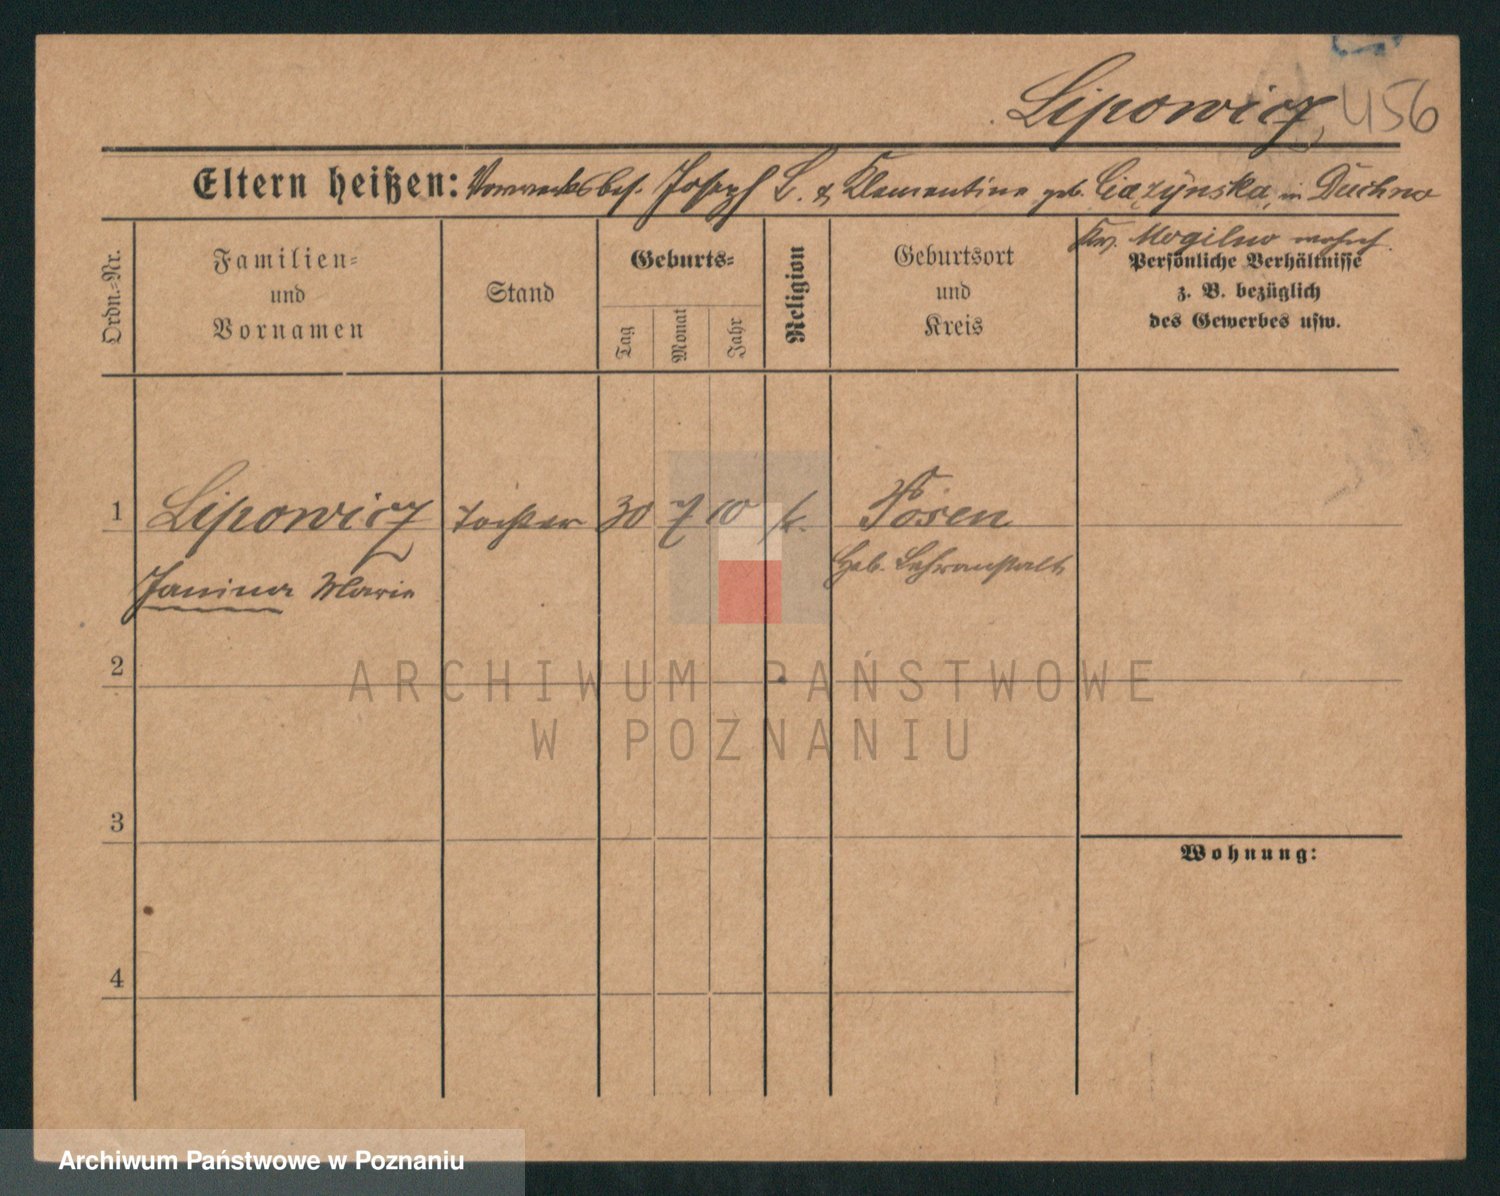 Lipowicz, 456
Eltern heißen: Vorwerksbes. Joseph L. & Klementine geb. Ciązynska, in Duchno
Krs. Mogilno wohnh.
Ordn.-Nr.
Familien-
und
Vornamen
Stand
Geburts-
Tag
Monat
Jahr
Religion
Geburtsort
und
Kreis
Persönliche Verhältnisse
z. B. bezüglich
des Gewerbes usw.
1 Lipowicz Tochter 30 7 10 k. Posen
Janina Marie Heb. Lehranstalt
2
ARCHIWUM PAŃSTWOWE
W POZNANIU
3
Wohnung:
4
Archiwum Państwowe w Poznaniu